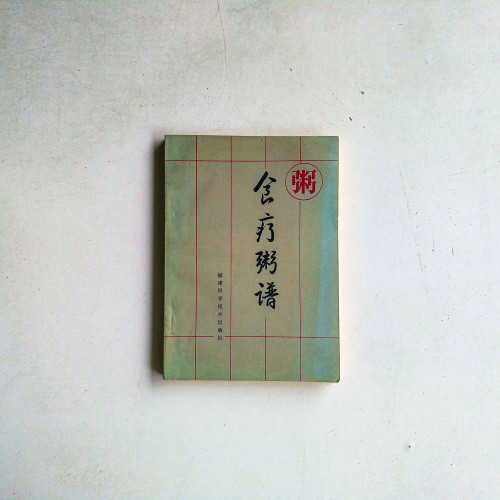 粥
食疗粥谱
福建科学技术出版社